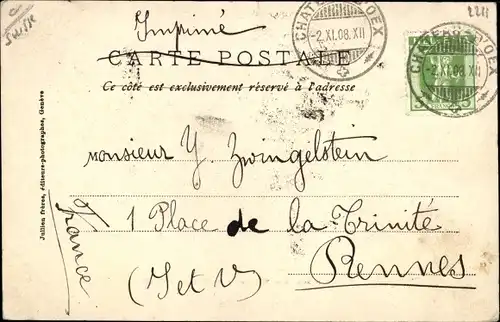 Suisse
Imprimé
CHATEAU D'OEX
-2.XI.08.XII
CHATEAU D'OEX
-2.XI.08.XII
CARTE POSTALE
Ce côté est exclusivement réservé à l'adresse
Monsieur Y. Zwingelstein
1 Place de la Trinité
Rennes
(I et V)
France
Jullien frères, éditeurs-photographes, Genève